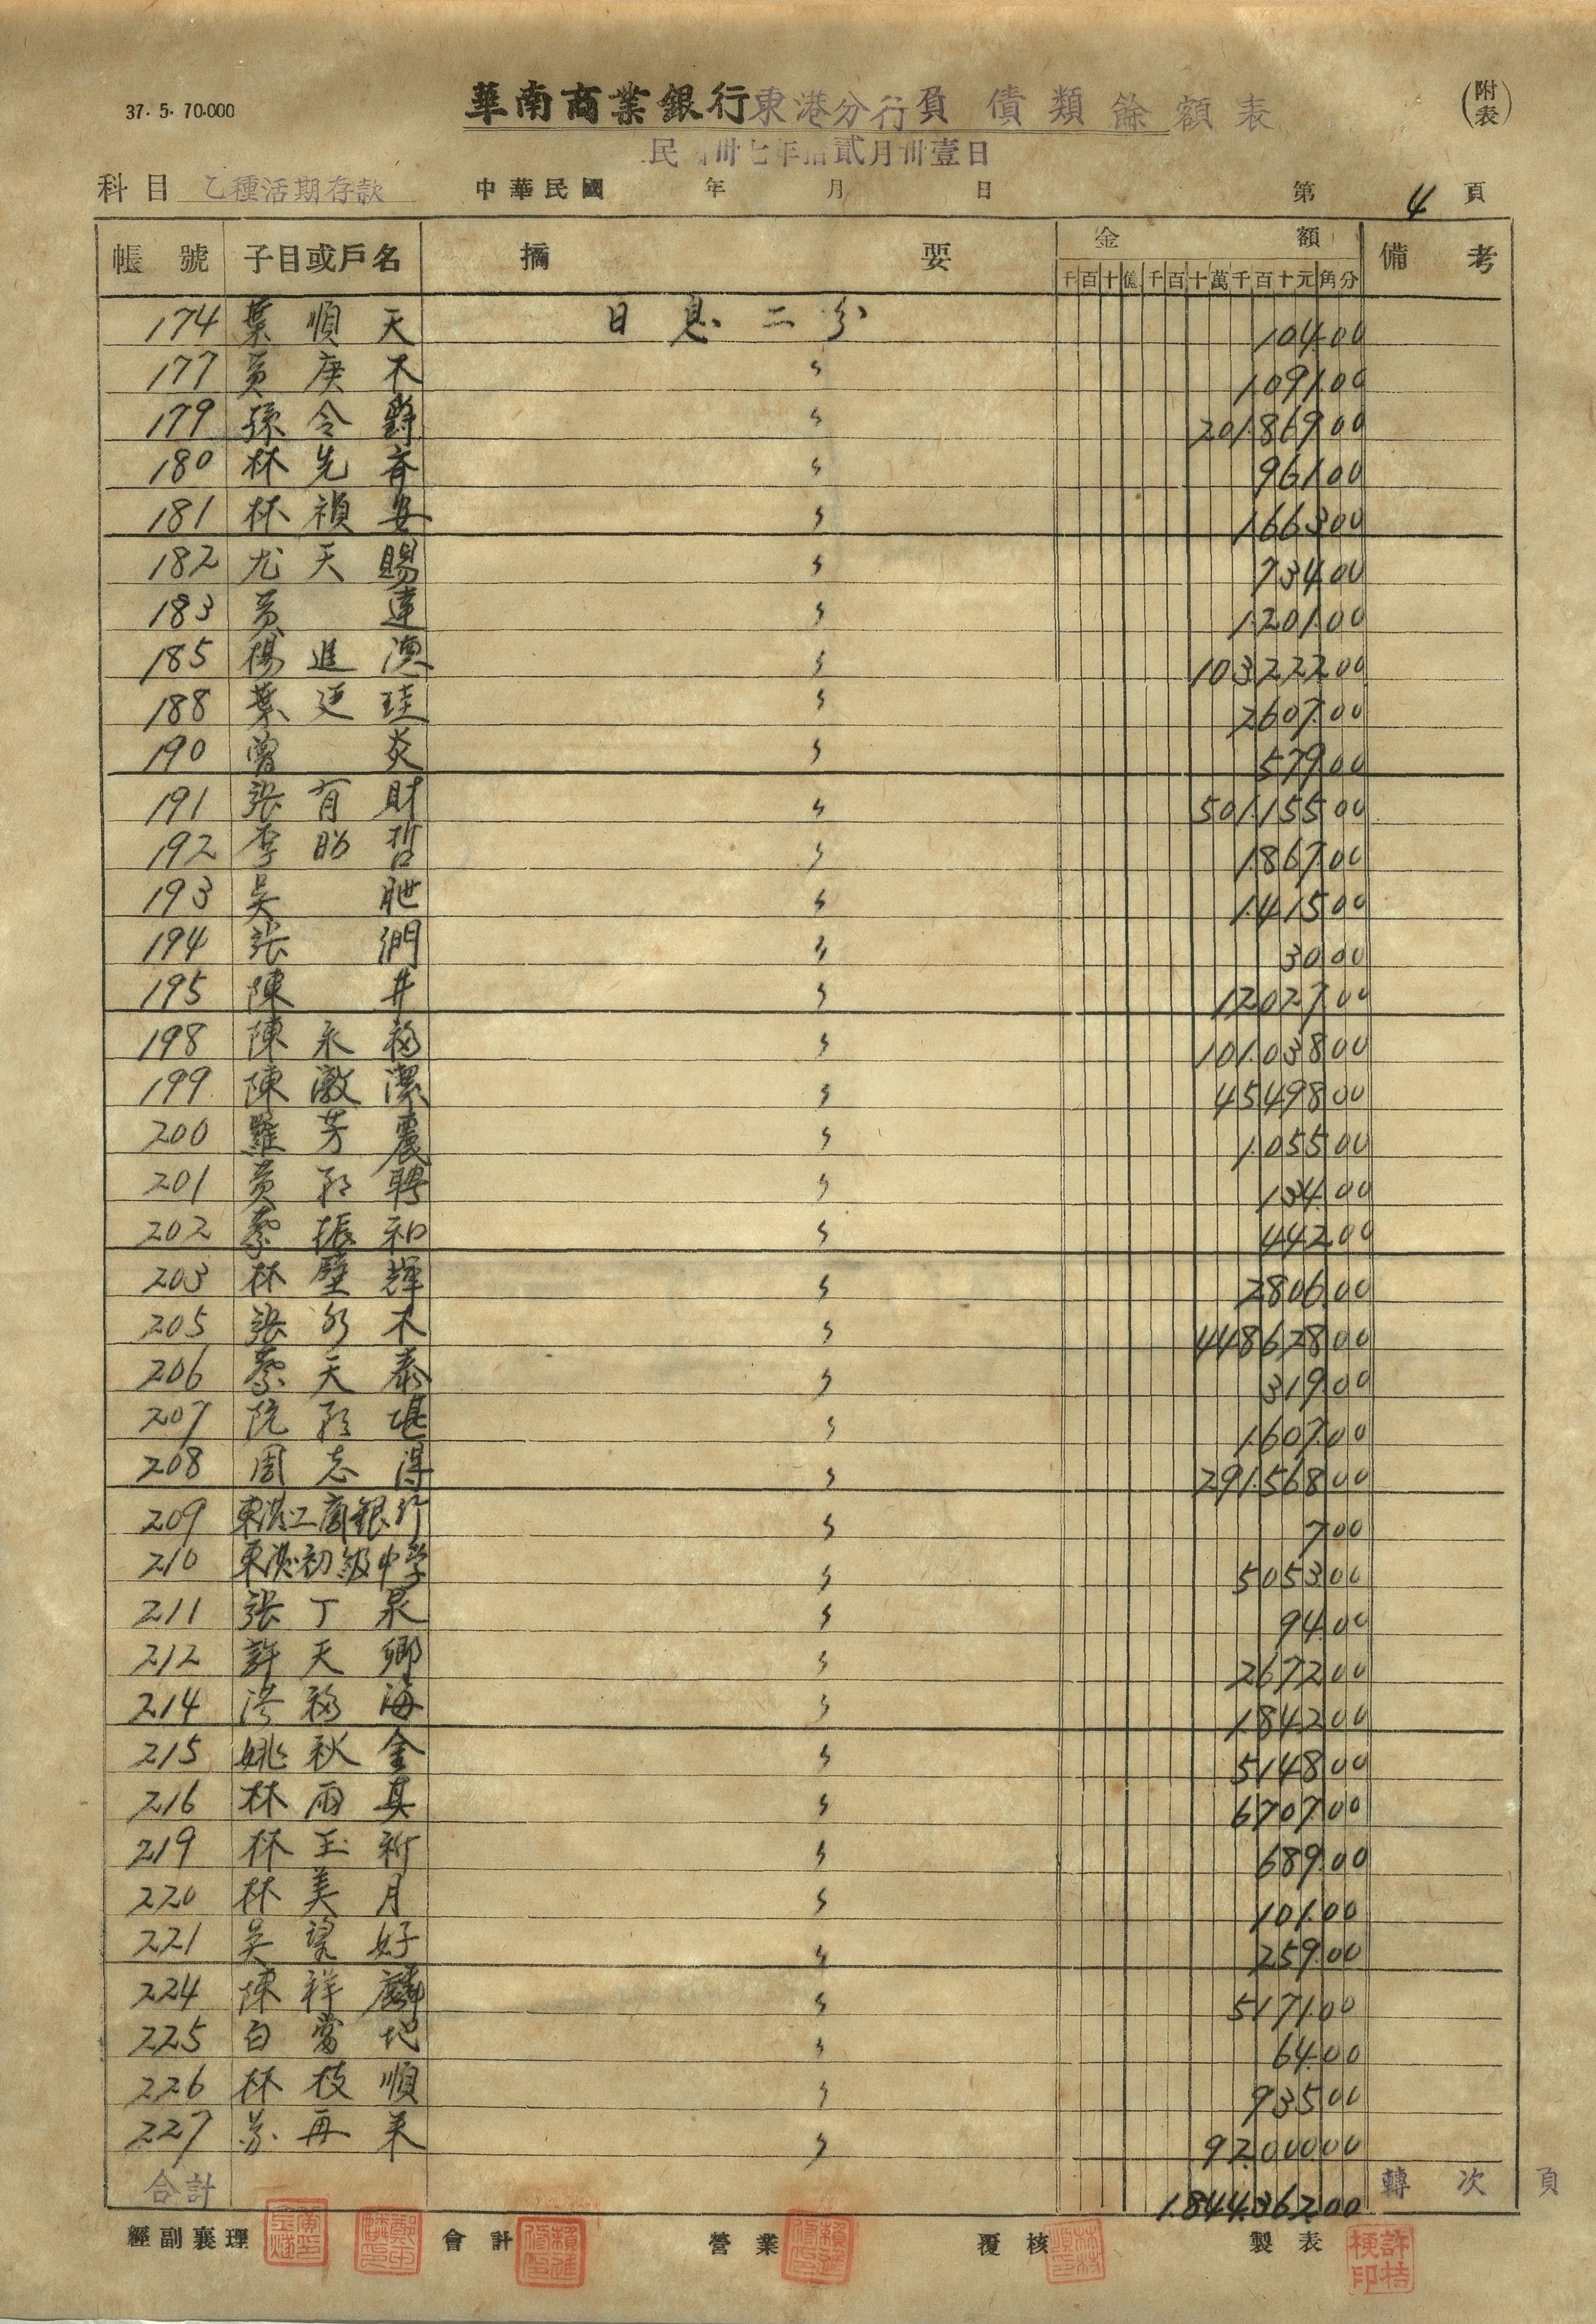 37. 5. 70.000
華南商業銀行東港分行負債類餘額表
(附表)
民國卅七年拾貳月卅壹日
科目 乙種活期存款 中華民國 年 月 日 第 4 頁
帳號 子目或戶名 摘要 金額 備考
千百十億千百十萬千百十元角分
174 葉順天 日息二分 104.00
177 黃庚木 〃 1.091.00
179 孫令爵 〃 201.869.00
180 林先齊 〃 961.00
181 林禎安 〃 1.663.00
182 尤天賜 〃 734.00
183 黃達 〃 1.201.00
185 楊進德 〃 103.222.00
188 葉廷珪 〃 2607.00
190 曾炎 〃 579.00
191 張有財 〃 501.155.00
192 李昭哲 〃 1.867.00
193 吳 〃 1.415.00
194 張們 〃 30.00
195 陳井 〃 12027.00
198 陳永福 〃 101.038.00
199 陳激潔 〃 45498.00
200 羅芳農 〃 1.055.00
201 黃聘 〃 134.00
202 蔡振和 〃 442.00
203 林璧輝 〃 2806.00
205 張水木 〃 448628.00
206 蔡天泰 〃 319.00
207 阮堪 〃 1.607.00
208 周志得 〃 291.568.00
209 東港工商銀行 〃 7.00
210 東港初級中学 〃 5053.00
211 張丁泉 〃 94.00
212 許天鄉 〃 2672.00
214 洪福海 〃 1.842.00
215 姚秋金 〃 5148.00
216 林雨其 〃 6707.00
219 林玉新 〃 689.00
220 林美月 〃 101.00
221 吳望好 〃 259.00
224 陳祥麟 〃 5171.00
225 白當地 〃 64.00
226 林枝順 〃 935.00
227 蘇再來 〃 92.000.00
合計 1.844.362.00 轉次頁
經副襄理 會計 營業 覆核 製表